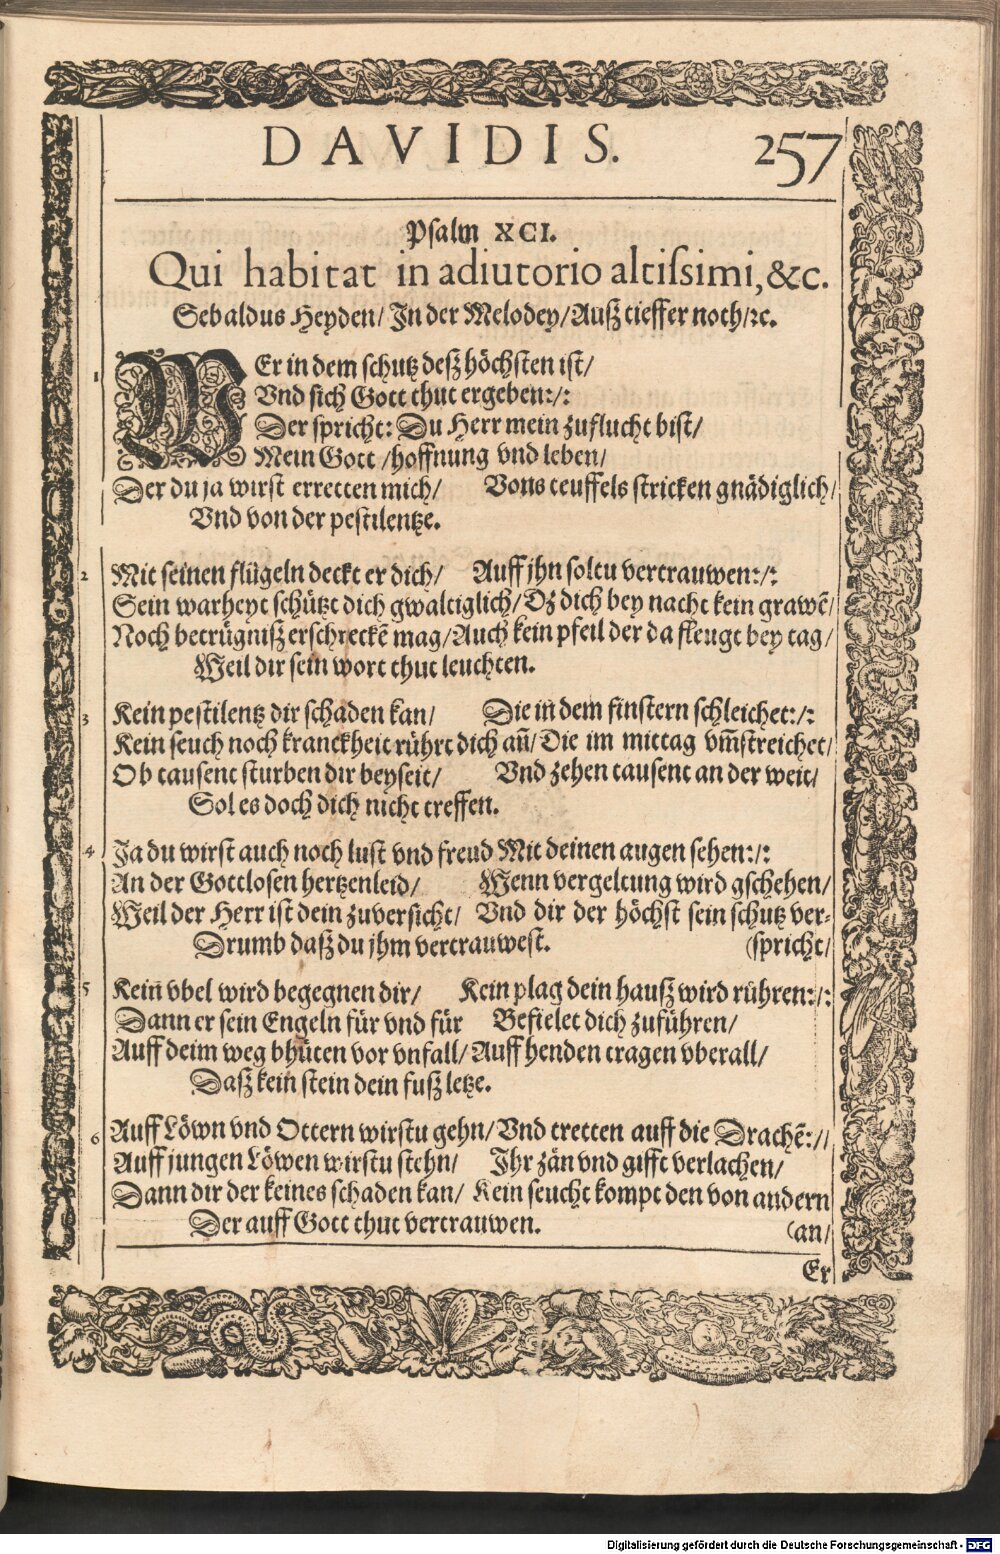 DAVIDIS. 257
Psalm XCI.
Qui habitat in adiutorio altiſsimi, &c.
Sebaldus Heyden/ In der Melodey/ Auß tieffer noth/ ꝛc.
1 WEr in dem schutz deß höchsten ist/
Vnd sich Gott thut ergeben:/:
Der spricht: Du Herr mein zuflucht bist/
Mein Gott/ hoffnung vnd leben/
Der du ja wirst erretten mich/ Vons teuffels stricken gnädiglich/
Vnd von der pestilentze.
2 Mit seinen flügeln deckt er dich/ Auff jhn soltu vertrauwen:/:
Sein warheyt schützt dich gwaltiglich/ Dz dich bey nacht kein grawẽ/
Noch betrügniß erschreckẽ mag/ Auch kein pfeil der da fleugt bey tag/
Weil dir sein wort thut leuchten.
3 Kein pestilentz dir schaden kan/ Die in dem finstern schleichet:/:
Kein seuch noch kranckheit rührt dich an/ Die im mittag vm̃streichet/
Ob tausent sturben dir beyseit/ Vnd zehen tausent an der weit/
Sol es doch dich nicht treffen.
4 Ja du wirst auch noch lust vnd freud Mit deinen augen sehen:/:
An der Gottlosen hertzenleid/ Wenn vergeltung wird gschehen/
Weil der Herr ist dein zuversicht/ Vnd dir der höchst sein schutz ver-
Drumb daß du jhm vertrauwest. (spricht/
5 Kein vbel wird begegnen dir/ Kein plag dein hauß wird rühren:/:
Dann er sein Engeln für vnd für Befielet dich zuführen/
Auff deim weg bhüten vor vnfall/ Auff henden tragen vberall/
Daß kein stein dein fuß letze.
6 Auff Löwn vnd Ottern wirstu gehn/ Vnd tretten auff die Drachẽ:/
Auff jungen Löwen wirstu stehn/ Ihr zän vnd gifft verlachen/
Dann dir der keines schaden kan/ Kein seucht kompt den von andern
Der auff Gott thut vertrauwen. (an/
Er
Digitalisierung gefördert durch die Deutsche Forschungsgemeinschaft - DFG